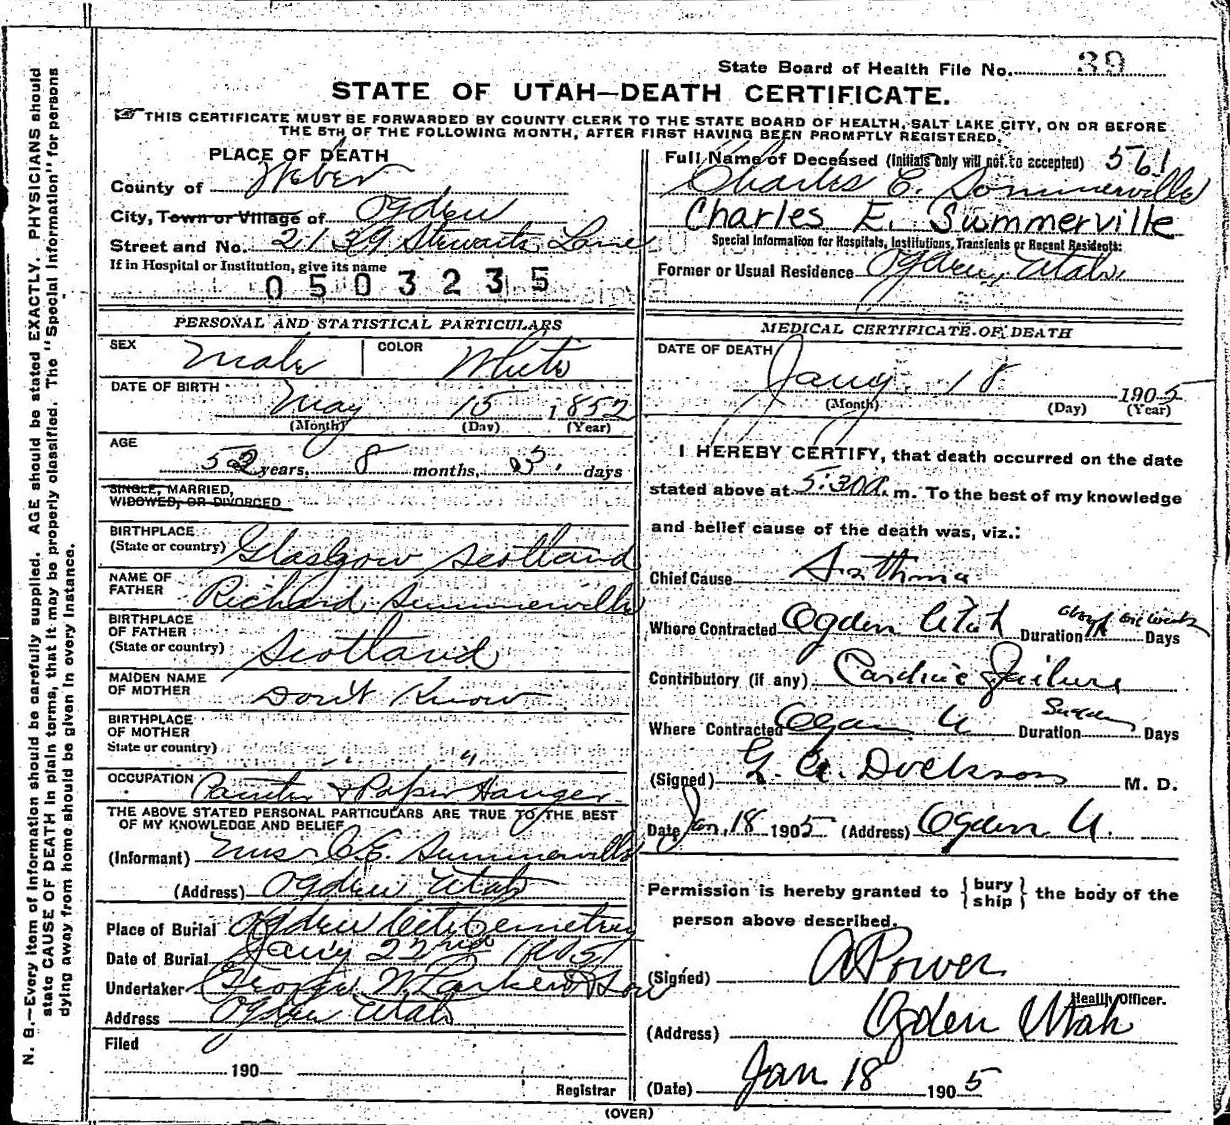 State Board of Health File No. 39
STATE OF UTAH—DEATH CERTIFICATE.
THIS CERTIFICATE MUST BE FORWARDED BY COUNTY CLERK TO THE STATE BOARD OF HEALTH, SALT LAKE CITY, ON OR BEFORE
THE 5TH OF THE FOLLOWING MONTH, AFTER FIRST HAVING BEEN PROMPTLY REGISTERED.
PLACE OF DEATH
County of Weber
City, Town or Village of Ogden
Street and No. 2139 Stewarts Lane
If in Hospital or Institution, give its name
0503235
Full Name of Deceased (Initials only will not to accepted) 561
Charles E. Sommerville
Charles E. Summerville
Special Information for Hospitals, Institutions, Transients or Recent Residents:
Former or Usual Residence Ogden, Utah
PERSONAL AND STATISTICAL PARTICULARS
SEX Male COLOR White
DATE OF BIRTH May 15 1852
(Month) (Day) (Year)
AGE 52 years, 8 months, 3 days
SINGLE, MARRIED,
WIDOWED, OR DIVORCED
BIRTHPLACE
(State or country) Glasgow Scotland
NAME OF
FATHER Richard Summerville
BIRTHPLACE
OF FATHER
(State or country) Scotland
MAIDEN NAME
OF MOTHER Don't Know
BIRTHPLACE
OF MOTHER
State or country) " "
OCCUPATION Painter & Paper Hanger
THE ABOVE STATED PERSONAL PARTICULARS ARE TRUE TO THE BEST
OF MY KNOWLEDGE AND BELIEF
(Informant) Mrs C.E. Summerville
(Address) Ogden Utah
Place of Burial Ogden City Cemetery
Date of Burial Jany 22nd 1905
Undertaker George W. Larkin & Son
Address Ogden Utah
Filed
190
Registrar
MEDICAL CERTIFICATE OF DEATH
DATE OF DEATH
Jany. 18 1905
(Month) (Day) (Year)
I HEREBY CERTIFY, that death occurred on the date
stated above at 5:30 a. m. To the best of my knowledge
and belief cause of the death was, viz.:
Chief Cause Asthma
Where Contracted Ogden Utah Duration about six weeks Days
Contributory (if any) Cardiac Failure
Where Contracted Ogden U Duration Sudden Days
(Signed) M. D.
Date Jan. 18 1905 (Address) Ogden U.
Permission is hereby granted to {bury ship} the body of the
person above described.
(Signed) A Power
Health Officer.
(Address) Ogden Utah
(Date) Jan 18 1905
(OVER)
N. B.—Every item of information should be carefully supplied. AGE should be stated EXACTLY. PHYSICIANS should
state CAUSE OF DEATH in plain terms, that it may be properly classified. The "Special Information" for persons
dying away from home should be given in every instance.